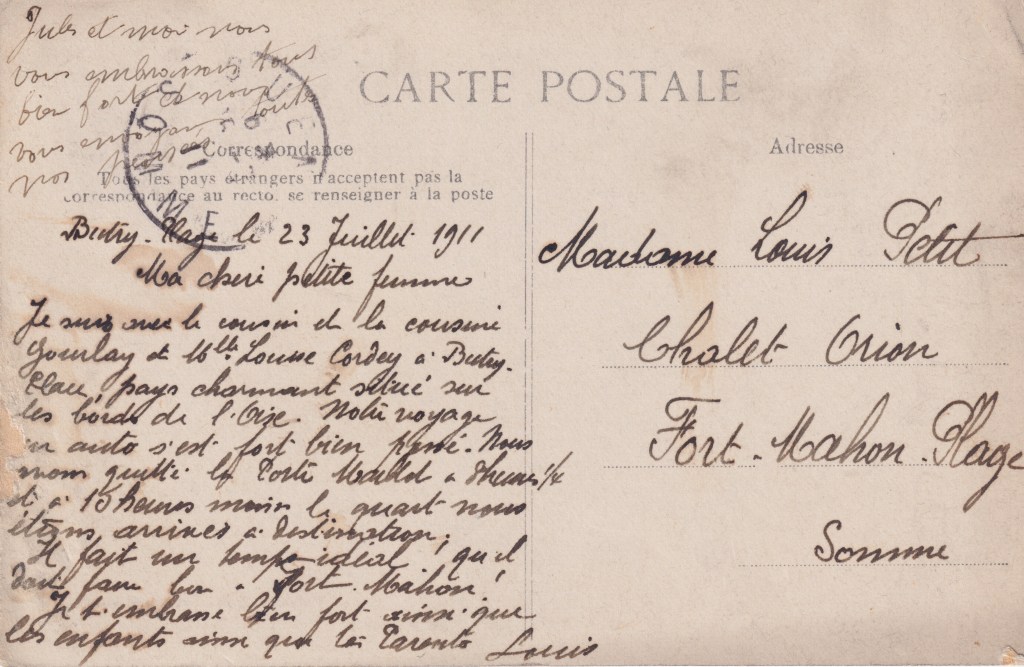 Jules et moi nous
vous embrassons tous
bien fort et nous
vous envoyons toutes
nos pensées
CARTE POSTALE
Correspondance
Tous les pays étrangers n'acceptent pas la
correspondance au recto, se renseigner à la poste
SOMME
11
Butry-Plage le 23 Juillet 1911
Ma cheri petite femme
Je suis avec le cousin et la cousine
Gourlay et Mlle Louise Cordey a Butry-
Place, pays charmant situé sur
les bords de l'Oise. Notre voyage
en auto s'est fort bien passé. Nous
avons quitté la Porte Maillot a heures 1/4
et a 10 heures moins le quart nous
étions arrivés a destination.
Il fait un temps idéal, qu'il
doit faire bon a Fort-Mahon!
Je t'embrasse bien fort ainsi que
les enfants ainsi que les Parents
Louis
Adresse
Madame Louis Petit
Chalet Orion
Fort-Mahon-Plage
Somme